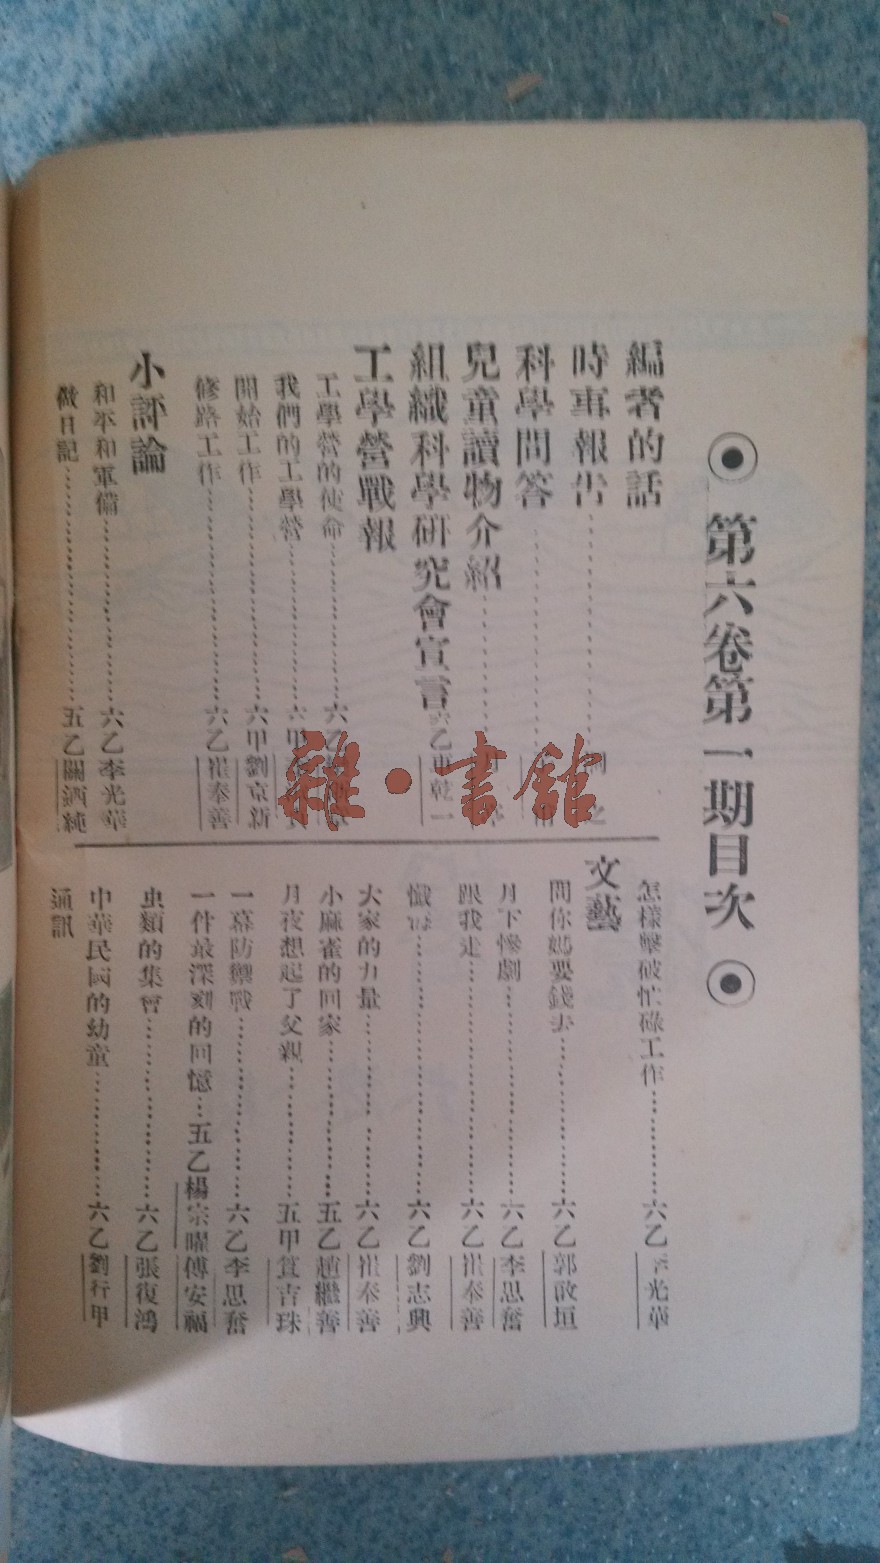 第六卷第一期目次
編者的話
時事報告
科學問答
兒童讀物介紹
組織科學研究會宣言 六乙 乾一
工學營戰報
工學營的使命 六乙
我們的工學營 六甲
開始工作 六甲劉京新
修路工作 六乙崔奉善
小評論
和平和軍備 六乙李光華
做日記 五乙關酒純
怎樣擊破忙碌工作 六乙李光華
文藝
問你媽要錢去 六乙郭啟垣
月下慘劇 六乙李思奮
跟我走 六乙崔奉善
懺悔 六乙劉志興
大家的力量 六乙崔奉善
小麻雀的回家 五乙趙繼善
月夜想起了父親 五甲筫吉珠
一幕防禦戰 六乙李思奮
一件最深刻的回憶 五乙楊宗曜傅安福
虫類的集會 六乙張復鴻
中華民國的幼童 六乙劉行甲
通訊
雜·書館